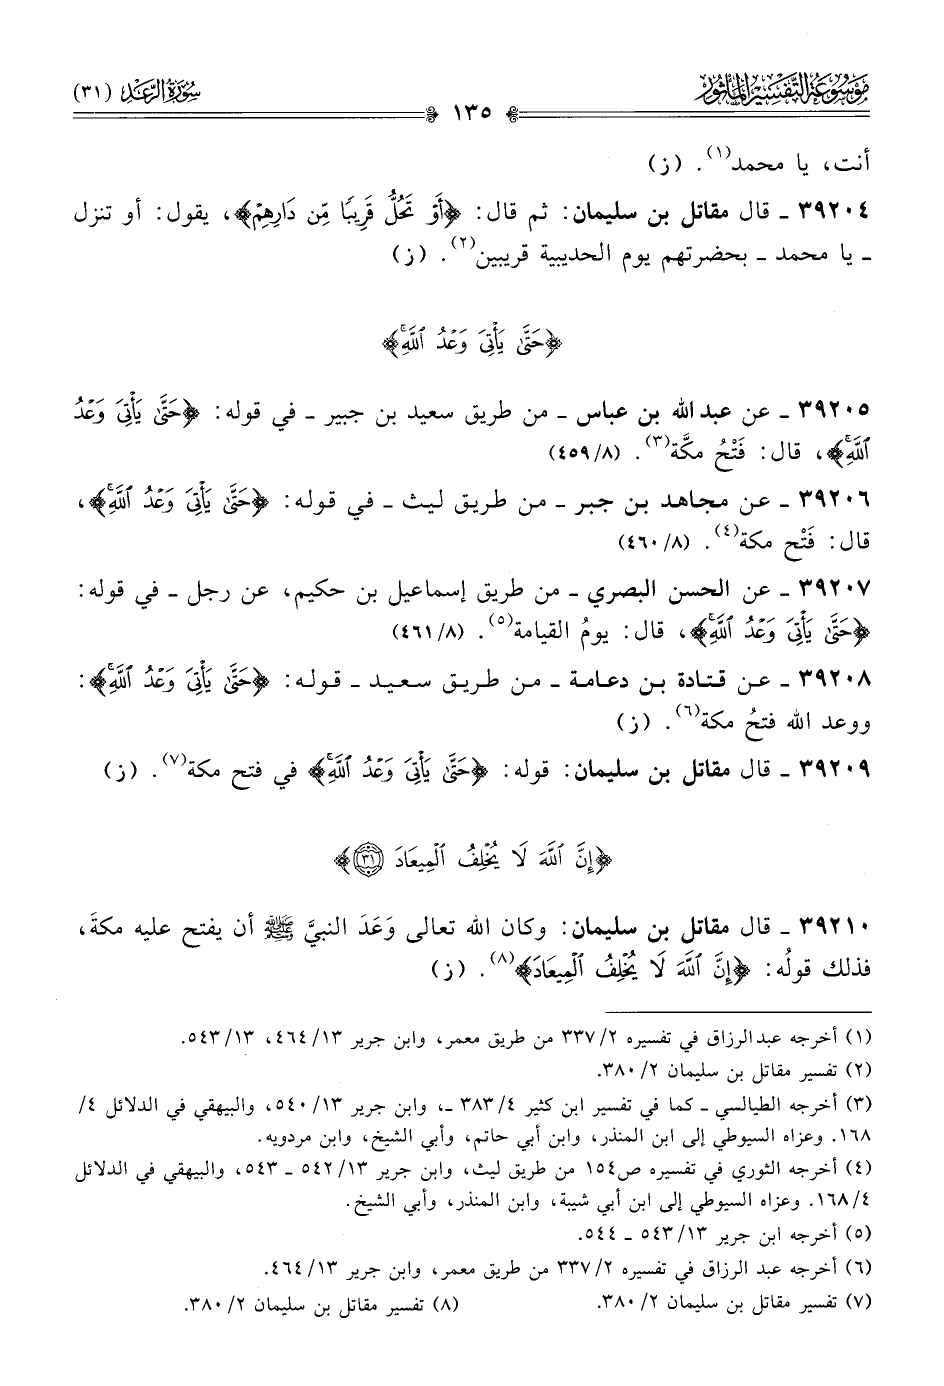 موسوعة التفسير المأثور
سورة الرعد (٣١)
١٣٥
أنت، يا محمد(١). (ز)
٣٩٢٠٤ ـ قال مقاتل بن سليمان: ثم قال: ﴿أَوْ تَحُلُّ قَرِيبًا مِّن دَارِهِمْ﴾، يقول: أو تنزل
ـ يا محمد ـ بحضرتهم يوم الحديبية قريبين(٢). (ز)
﴿حَتَّىٰ يَأْتِىَ وَعْدُ ٱللَّهِۚ﴾
٣٩٢٠٥ ـ عن عبد الله بن عباس ـ من طريق سعيد بن جبير ـ في قوله: ﴿حَتَّىٰ يَأْتِىَ وَعْدُ
ٱللَّهِۚ﴾، قال: فَتْحُ مكَّة(٣). (٤٥٩/٨)
٣٩٢٠٦ ـ عن مجاهد بن جبر ـ من طريق ليث ـ في قوله: ﴿حَتَّىٰ يَأْتِىَ وَعْدُ ٱللَّهِۚ﴾،
قال: فَتْح مكة(٤). (٤٦٠/٨)
٣٩٢٠٧ ـ عن الحسن البصري ـ من طريق إسماعيل بن حكيم، عن رجل ـ في قوله:
﴿حَتَّىٰ يَأْتِىَ وَعْدُ ٱللَّهِۚ﴾، قال: يومُ القيامة(٥). (٤٦١/٨)
٣٩٢٠٨ ـ عن قتادة بن دعامة ـ من طريق سعيد ـ قوله: ﴿حَتَّىٰ يَأْتِىَ وَعْدُ ٱللَّهِۚ﴾:
ووعد الله فتحُ مكة(٦). (ز)
٣٩٢٠٩ ـ قال مقاتل بن سليمان: قوله: ﴿حَتَّىٰ يَأْتِىَ وَعْدُ ٱللَّهِۚ﴾ في فتح مكة(٧). (ز)
﴿إِنَّ ٱللَّهَ لَا يُخْلِفُ ٱلْمِيعَادَ ٣١﴾
٣٩٢١٠ ـ قال مقاتل بن سليمان: وكان الله تعالى وَعَدَ النبيَّ ﷺ أن يفتح عليه مكةَ،
فذلك قولُه: ﴿إِنَّ ٱللَّهَ لَا يُخْلِفُ ٱلْمِيعَادَ﴾(٨). (ز)
(١) أخرجه عبدالرزاق في تفسيره ٣٣٧/٢ من طريق معمر، وابن جرير ٤٦٤/١٣، ٥٤٣/١٣.
(٢) تفسير مقاتل بن سليمان ٣٨٠/٢.
(٣) أخرجه الطيالسي ـ كما في تفسير ابن كثير ٣٨٣/٤ ـ، وابن جرير ٥٤٠/١٣، والبيهقي في الدلائل ٤/
١٦٨. وعزاه السيوطي إلى ابن المنذر، وابن أبي حاتم، وأبي الشيخ، وابن مردويه.
(٤) أخرجه الثوري في تفسيره ص١٥٤ من طريق ليث، وابن جرير ٥٤٢/١٣ ـ ٥٤٣، والبيهقي في الدلائل
١٦٨/٤. وعزاه السيوطي إلى ابن أبي شيبة، وابن المنذر، وأبي الشيخ.
(٥) أخرجه ابن جرير ٥٤٣/١٣ ـ ٥٤٤.
(٦) أخرجه عبد الرزاق في تفسيره ٣٣٧/٢ من طريق معمر، وابن جرير ٤٦٤/١٣.
(٧) تفسير مقاتل بن سليمان ٣٨٠/٢.
(٨) تفسير مقاتل بن سليمان ٣٨٠/٢.